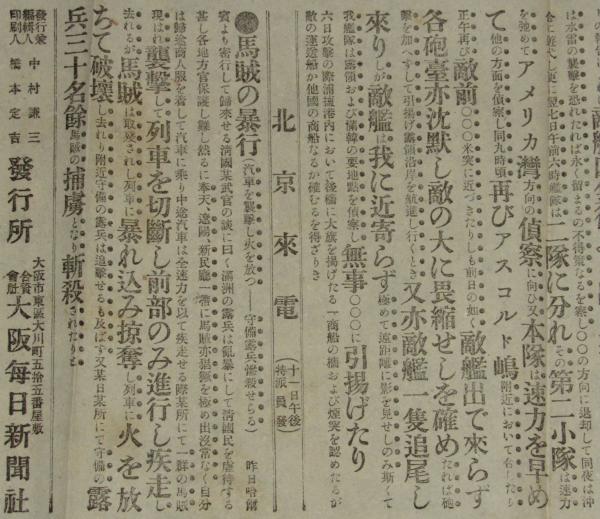 は水雷の襲擊を恐れたれば永く留まるの不得策なるを察し〇〇の方向に退却して同夜は沖
合に遊弋し更に翌七日午前六時艦隊は二隊に分れその第二小隊は速力
を弛めてアメリカ灣方向の偵察に向ひ又本隊は速力を早め
て他の方面を偵察し同九時頃再びアスコルド嶋附近において合したり
正午再び敵前〇〇〇米突に近づきたりしも前日の如く敵艦出で來らず
各砲臺亦沈默し敵の大に畏縮せしを確めたれば砲
擊を加へずして引揚げ露領沿岸を航進し行くとき又亦敵艦一隻追尾し
來りしが敵艦は我に近寄らず極めて遠距離に影を見せしのみ斯くて
我艦隊は露領および備韓の要地點を偵察し無事〇〇〇に引揚げたり
六日攻擊の際浦塩港內において後檣に大旗を揚げたる一商船の檣および煙突を認めたるが
敵の運送船か他國の商船なるか確むるを得ざりき
北京來電(十一日午後特派員發)
◉馬賊の暴行(汽車を襲擊し火を放つ——守備露兵慘殺せらる)昨日哈爾
賓より密行して歸來せる淸國某武官の談に曰く滿洲の露兵は亂暴にして淸國民を虐待する
甚し各地方官保護し難し然るに奉天、遼陽、新民廳一帶に馬賊亦猖獗を極め出沒常なく自分
は歸途商人服を着して汽車に乘り中途汽車は全速力を以て疾走せる際某所にて一群の馬賊
現はれ襲擊して列車を切斷し前部のみ進行し疾走し
去れるが馬賊は取殘されし列車に暴れ込み掠奪し列車に火を放
ちて破壞し去れり附近守備の露兵は追擊せるも及ばず又某日某所にて守備の露
兵三十名餘馬賊の捕虜となり斬殺されたりと
發行兼編輯人 中村謙三
印刷人 橋本定吉
發行所
大阪市東區大川町五拾五番屋敷
合資會社 大阪每日新聞社